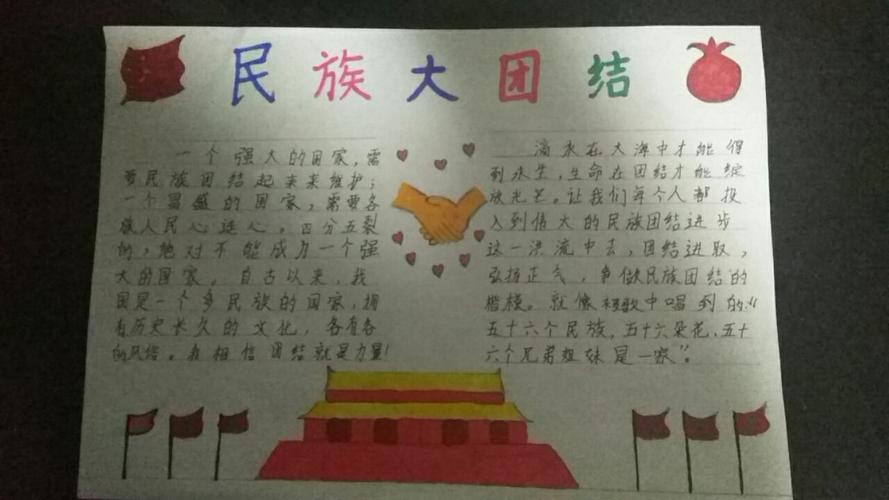 民族大团结
一个强大的国家,需
要民族团结起来来维护;
一个富盛的国家,需要各
族人民心连心。四分五裂
的,绝对不能成为一个强
大的国家。自古以来,我
国是一个多民族的国家,拥
有历史长久的文化,各有各
的风俗。我相信团结就是力量!
滴水在大海中才能得
到永生,生命在团结才能绽
放光芒。让我们每个人都投
入到伟大的民族团结进步
这一洪流中去,团结进取,
弘扬正气,争做民族团结的
楷模。就像歌中唱到的“
五十六个民族,五十六朵花,五十
六个兄弟姐妹是一家”。